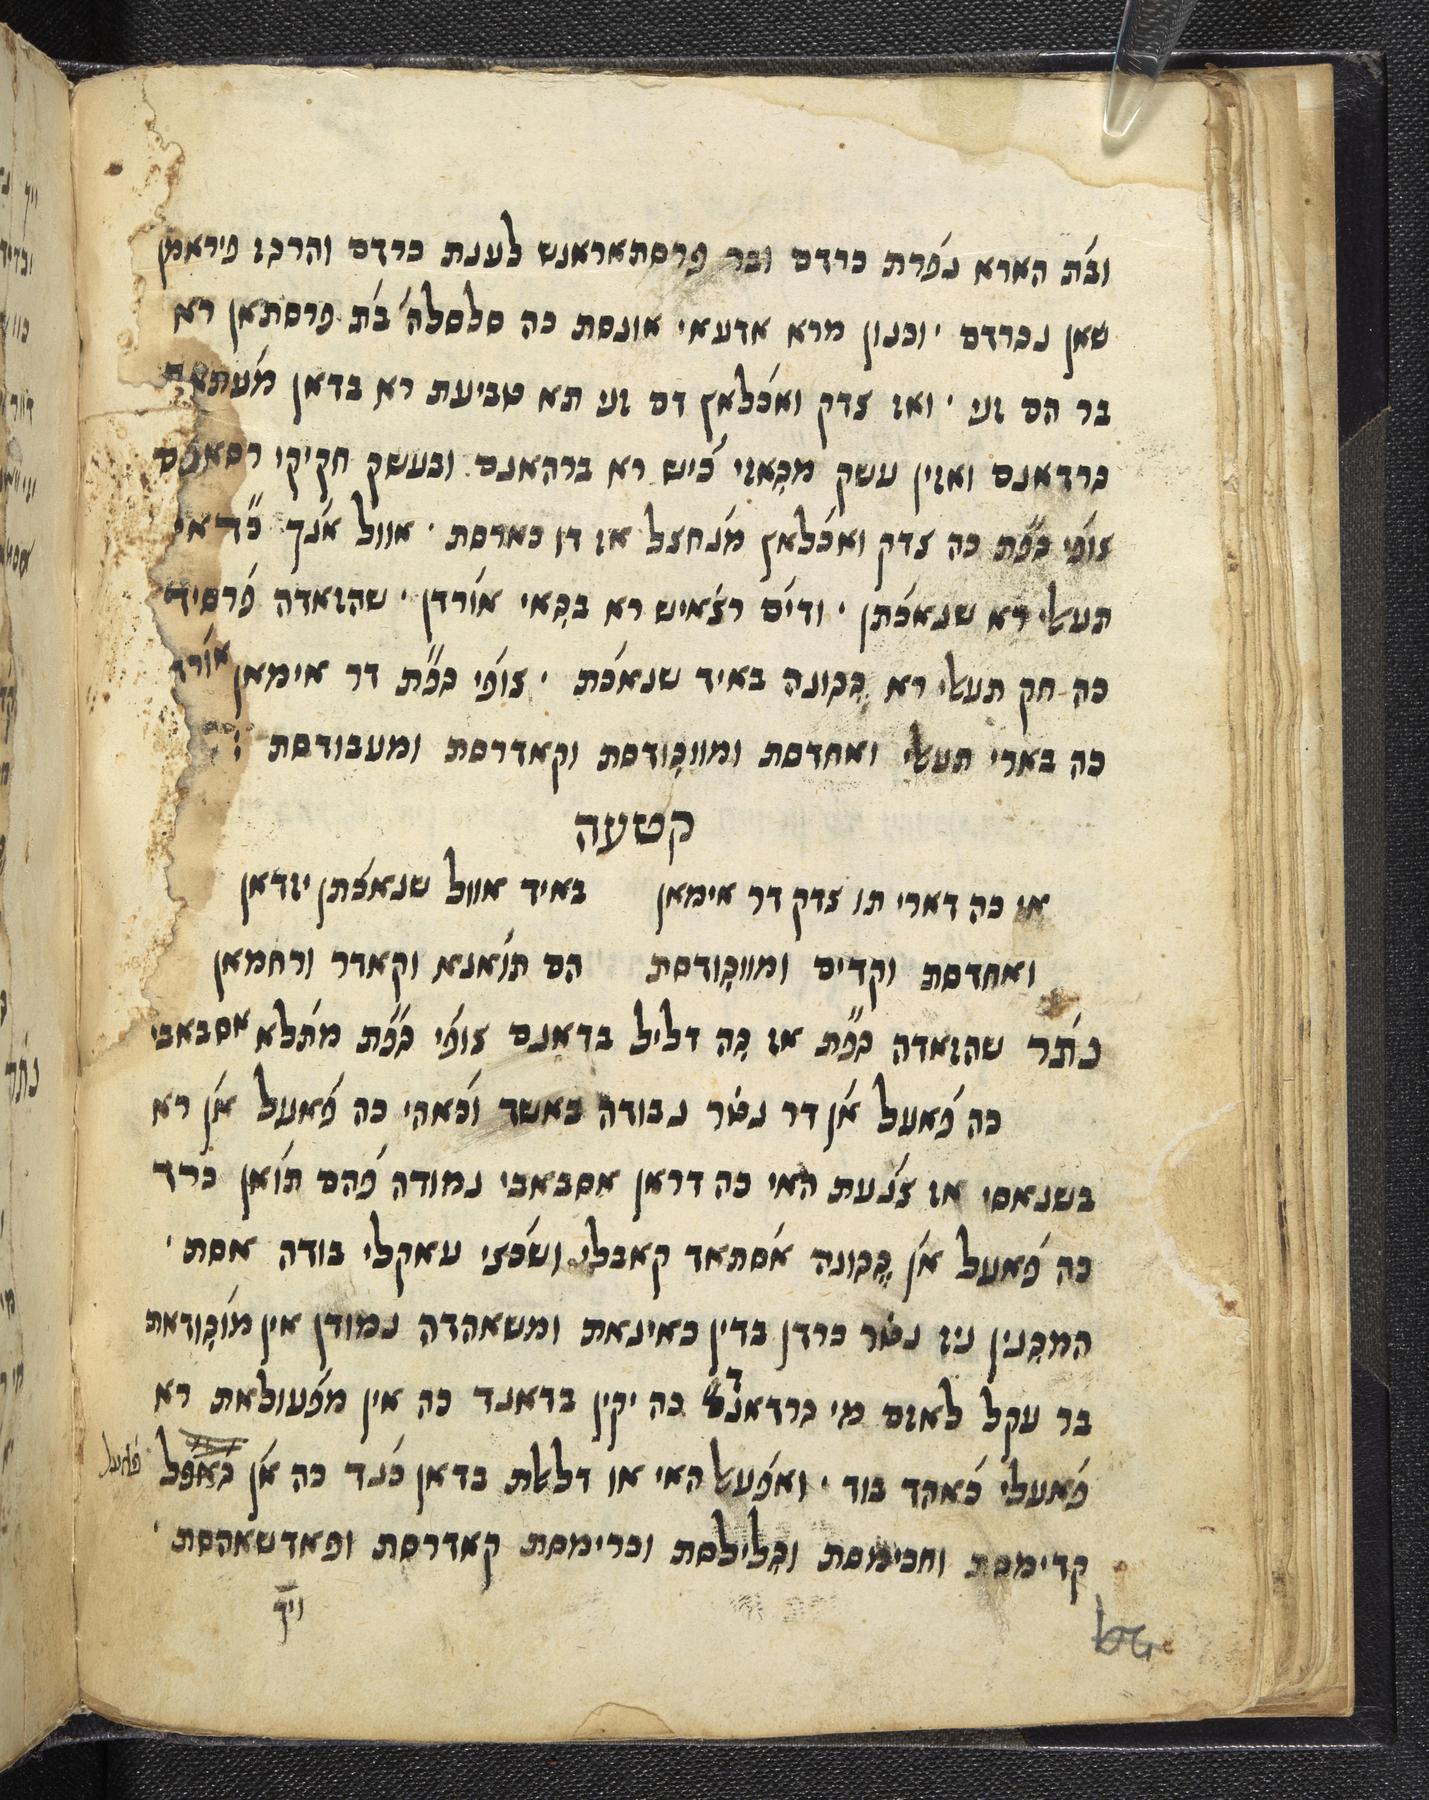 ובֹת הארא נפֹרת כרדם ובר פרסתאראנש לענת כרדם והרכז פיראמן
שאן נכרדם ׳ וכנון מרא אדעאי אונסת כה סלסלהֹ בֹת פרסתאן רא
בר הם זני ׳ ואז צדק ואכֹלאץ דם זני תא טביעת רא בדאן
כרדאנם ואזין עשק מגָאזי כֹיש רא ברהאנם ובעשק חקיקי רסאנם
צופֹי גפֹ״ת כה צדק ואכֹלאץ מנֹחצל אז דו כארסת ׳ אוול אנֹך
תעאלי רא שנאכֹתן ׳ ודיֹם רצֹאיש רא בגָאי אוֹרדן ׳ שהזאדה פֹרסיד
כה חק תעאלי רא גָגונה באיד שנאכֹת ׳ צופֹי גפֹ״ת דר אימאן אוֹרד
כה בארי תעאלי ואחדסת ומווגָודסת וקאדרסת ומעבודסת :
קטעה
אי כה דארי תו צדק דר אימאן באיד אוול שנאכֹתן יזדאן
ואחדסת וקדים ומווגָודסת הם תוֹאנא וקאדר ורחמאן
נתֹר שהזאדה גפֹ״ת אז גָה דליל בדאנם צופֹי גפֹ״ת מתֹלא אסבאבי
כה פֹאעל אֹן דר נטֹר נבודה באשד וכֹאהי כה פֹאעל אֹן רא
בשנאסי אז צנֹעת האי כה דראן אסבאבי נמודה פֹהם תוֹאן כרד
כה פֹאעל אֹן גָגונה אסֹתאד קאבלי ושכֹצי עאקלי בודה אסת ׳
המגָנין ניז נטֹר כרדן בדין כאינאת ומשאהדה נמודן אין מוֹגָודאת
בר עקל לאזם מי גרדאנד כה יקין בדאנד כה אין מפֹעולאת רא
פֹאעלי כֹאהד בוד ׳ ואפֹעאל האי או דלאלת בדאן כנֹד כה אֹן פֹאעל
קדימסת וחכימסת וגָלילסת וכרימסת קאדרסת ופאדשאהסת ׳
ויך